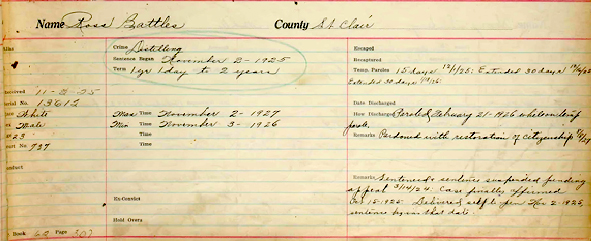 Name Ross Battles County St. Clair
Alias
Crime Distilling
Sentence Began November 2-1925
Term 1 yr 1 day to 2 years
Escaped
Recaptured
Temp. Paroles 15 days 12/1/25: Extended 30 days
Extended 30 days
Received 11-2-25
Serial No. 13612
White
Male
23
Court No 737
Conduct
Max Time November 2-1927
Min Time November 3-1926
Time
Date Discharged
How Discharged Paroled February 21-1926 while on temp
parole.
Remarks Pardoned with restoration of citizenship
Remarks Sentenced & sentence suspended pending
appeal 3/14/24. Case finally affirmed
Oct 15-1925. Delivered self to pen Nov. 2-1925,
sentence begun that date.
Ex-Convict
Hold Orders
Book 62 Page 307